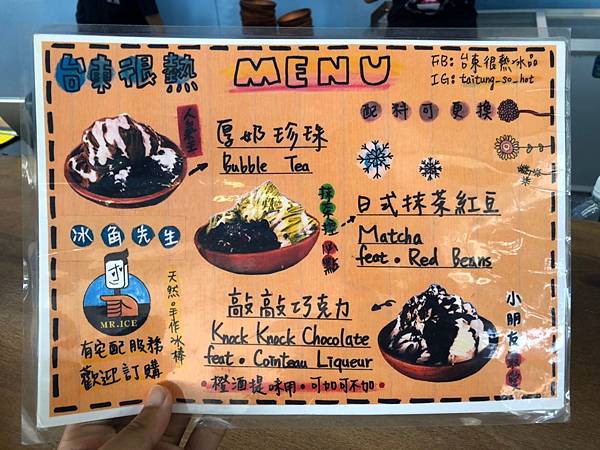 台東很熱
MENU
FB: 台東很熱冰品
IG: taitung_so_hot
配料可更換
人氣王
厚奶珍珠
Bubble Tea
抹茶控必點
日式抹茶紅豆
Matcha
feat. Red Beans
冰角先生
MR.ICE
天然。手作冰棒
有宅配服務
歡迎訂購
敲敲巧克力
Knock Knock Chocolate
feat. Cointeau Liqueur
•橙酒提味用。可加可不加•
小朋友最愛